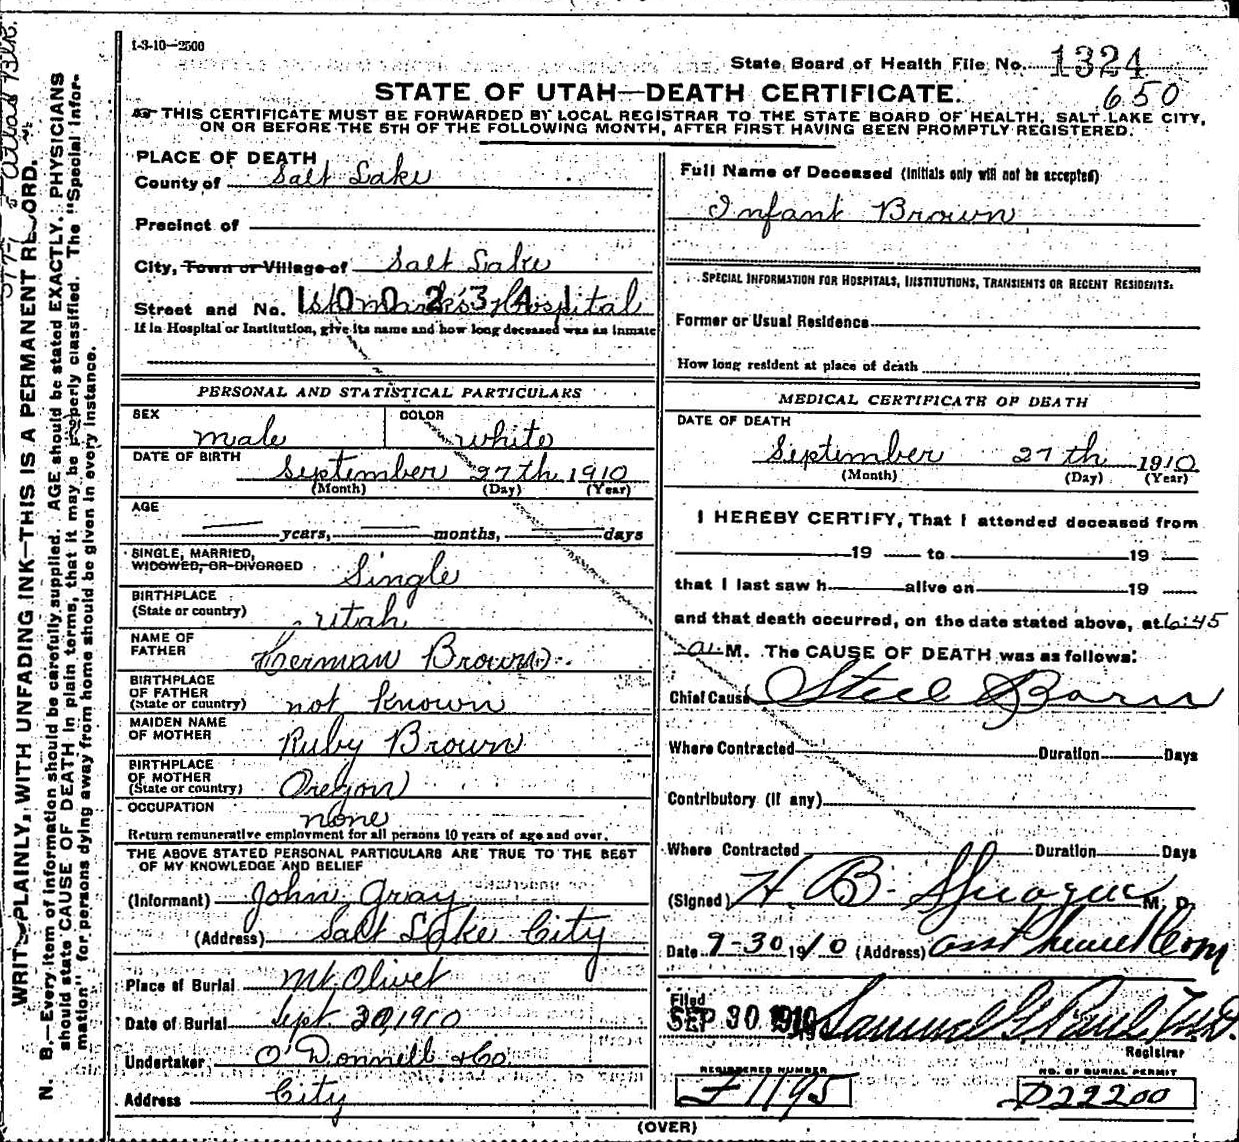 1-3-10—2500
State Board of Health File No. 1324
650
STATE OF UTAH—DEATH CERTIFICATE.
THIS CERTIFICATE MUST BE FORWARDED BY LOCAL REGISTRAR TO THE STATE BOARD OF HEALTH, SALT LAKE CITY,
ON OR BEFORE THE 5TH OF THE FOLLOWING MONTH, AFTER FIRST HAVING BEEN PROMPTLY REGISTERED.
PLACE OF DEATH
County of Salt Lake
Precinct of
City, Town or Village of Salt Lake
Street and No. St Mark's Hospital
1002341
If in Hospital or Institution, give its name and how long deceased was an inmate
PERSONAL AND STATISTICAL PARTICULARS
SEX male COLOR white
DATE OF BIRTH September 27th 1910
(Month) (Day) (Year)
AGE
years, months, days
SINGLE, MARRIED,
WIDOWED, OR DIVORCED Single
BIRTHPLACE
(State or country) Utah
NAME OF
FATHER Herman Brown
BIRTHPLACE
OF FATHER
(State or country) not known
MAIDEN NAME
OF MOTHER Ruby Brown
BIRTHPLACE
OF MOTHER
(State or country) Oregon
OCCUPATION none
Return remunerative employment for all persons 10 years of age and over.
THE ABOVE STATED PERSONAL PARTICULARS ARE TRUE TO THE BEST
OF MY KNOWLEDGE AND BELIEF
(Informant) John Gray
(Address) Salt Lake City
Place of Burial Mt Olivet
Date of Burial Sept. 30, 1910
Undertaker O'Donnell & Co.
Address City
Full Name of Deceased (Initials only will not be accepted)
Infant Brown
SPECIAL INFORMATION FOR HOSPITALS, INSTITUTIONS, TRANSIENTS OR RECENT RESIDENTS:
Former or Usual Residence
How long resident at place of death
MEDICAL CERTIFICATE OF DEATH
DATE OF DEATH
September 27th 1910
(Month) (Day) (Year)
I HEREBY CERTIFY, That I attended deceased from
19 to 19
that I last saw h alive on 19
and that death occurred, on the date stated above, at 6:45
a M. The CAUSE OF DEATH was as follows:
Chief Cause Steel Born
Where Contracted Duration Days
Contributory (if any)
Where Contracted Duration Days
(Signed) H. B. Sprague M. D.
Date 9-30 1910 (Address)
Filed
SEP 30 1910 Samuel G Paul M.D.
Registrar
REGISTERED NUMBER
F1195
NO. OF BURIAL PERMIT
D22200
(OVER)
WRITE PLAINLY, WITH UNFADING INK—THIS IS A PERMANENT RECORD.
N. B.—Every item of information should be carefully supplied. AGE should be stated EXACTLY. PHYSICIANS
should state CAUSE OF DEATH in plain terms, that it may be properly classified. The "Special Infor-
mation" for persons dying away from home should be given in every instance.